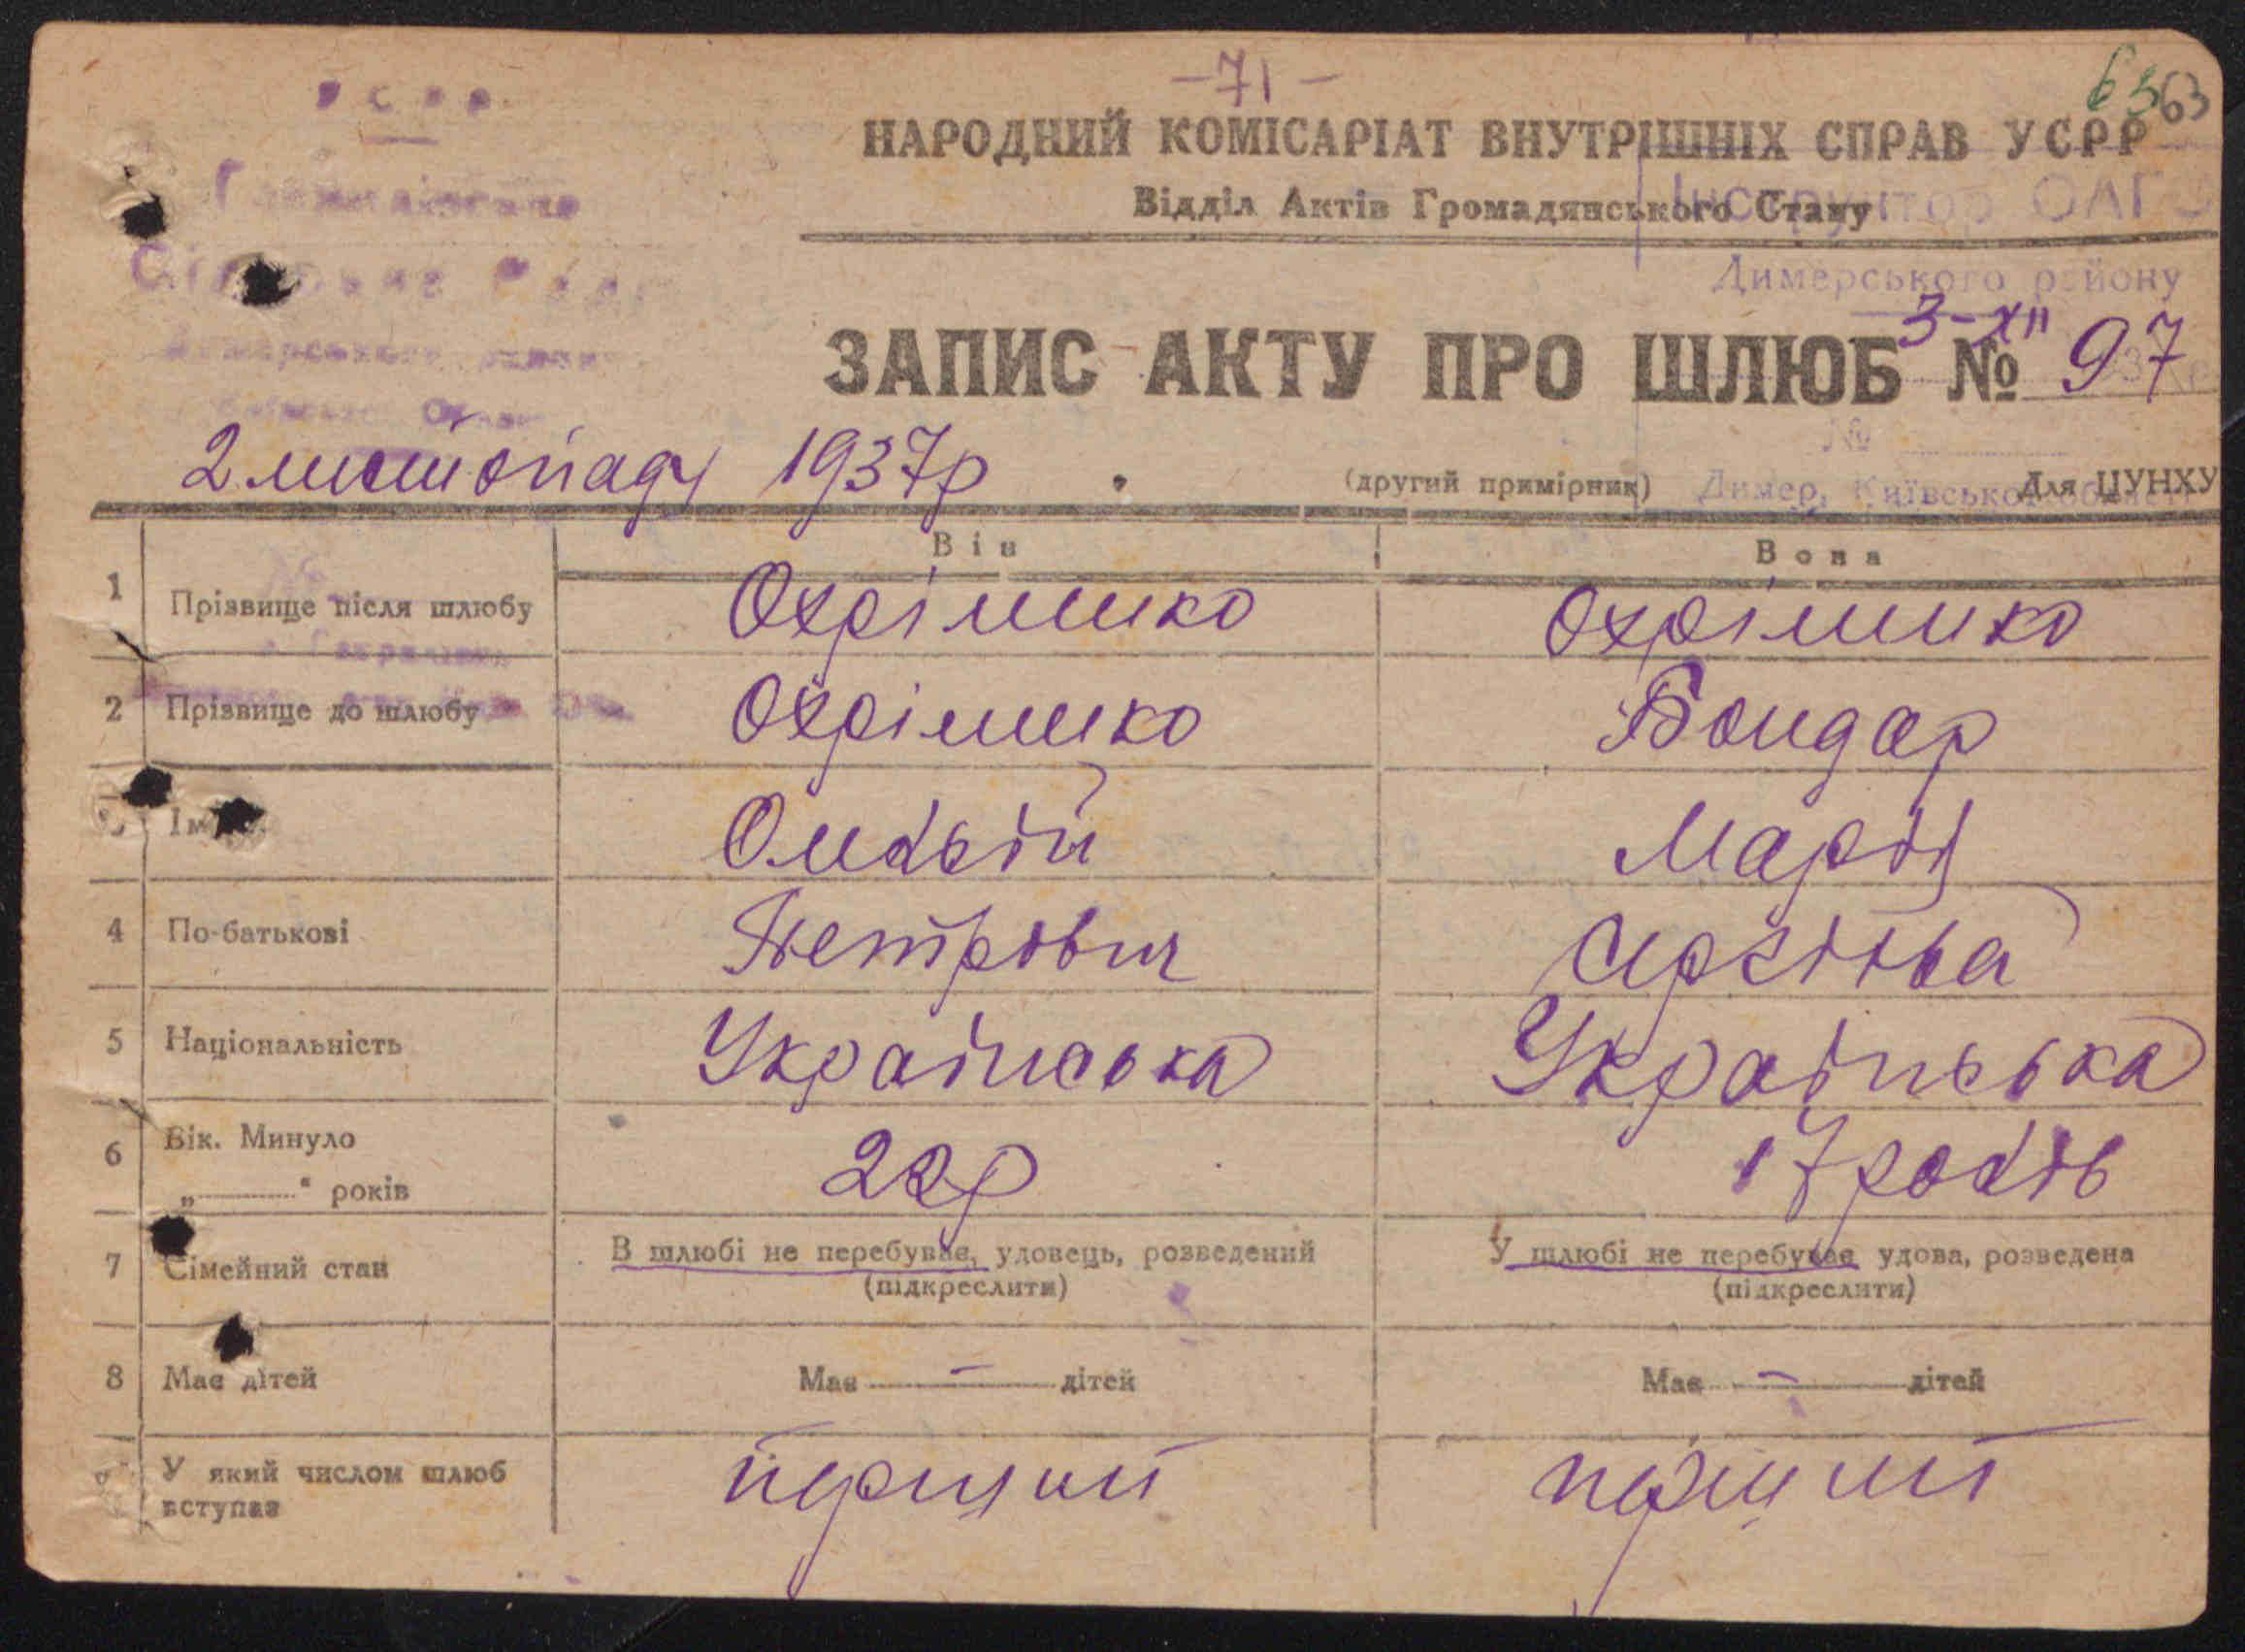 - 71 -
63
УСРР
НАРОДНИЙ КОМІСАРІАТ ВНУТРІШНІХ СПРАВ УСРР
Відділ Актів Громадянського Стану
Інструктор ОАГС
Димерського району
3-XII
ЗАПИС АКТУ ПРО ШЛЮБ № 97
№
2 листопаду 1937р
(другий примірник) Для ЦУНХУ
Димер, Київської області
Він Вона
1 Прізвище після шлюбу Охріминко Охріминко
2 Прізвище до шлюбу Охріминко Бондар
Ім
4 По-батькові Петрович
Марія
5 Національність Українська Українська
6 Вік. Минуло
„ “ років 22р 17 років
7 Сімейний стан В шлюбі не перебуває, удовець, розведений У шлюбі не перебуває удова, розведена
(підкреслити) (підкреслити)
8 Має дітей Має – дітей Має – дітей
У який числом шлюб
вступає перший перший